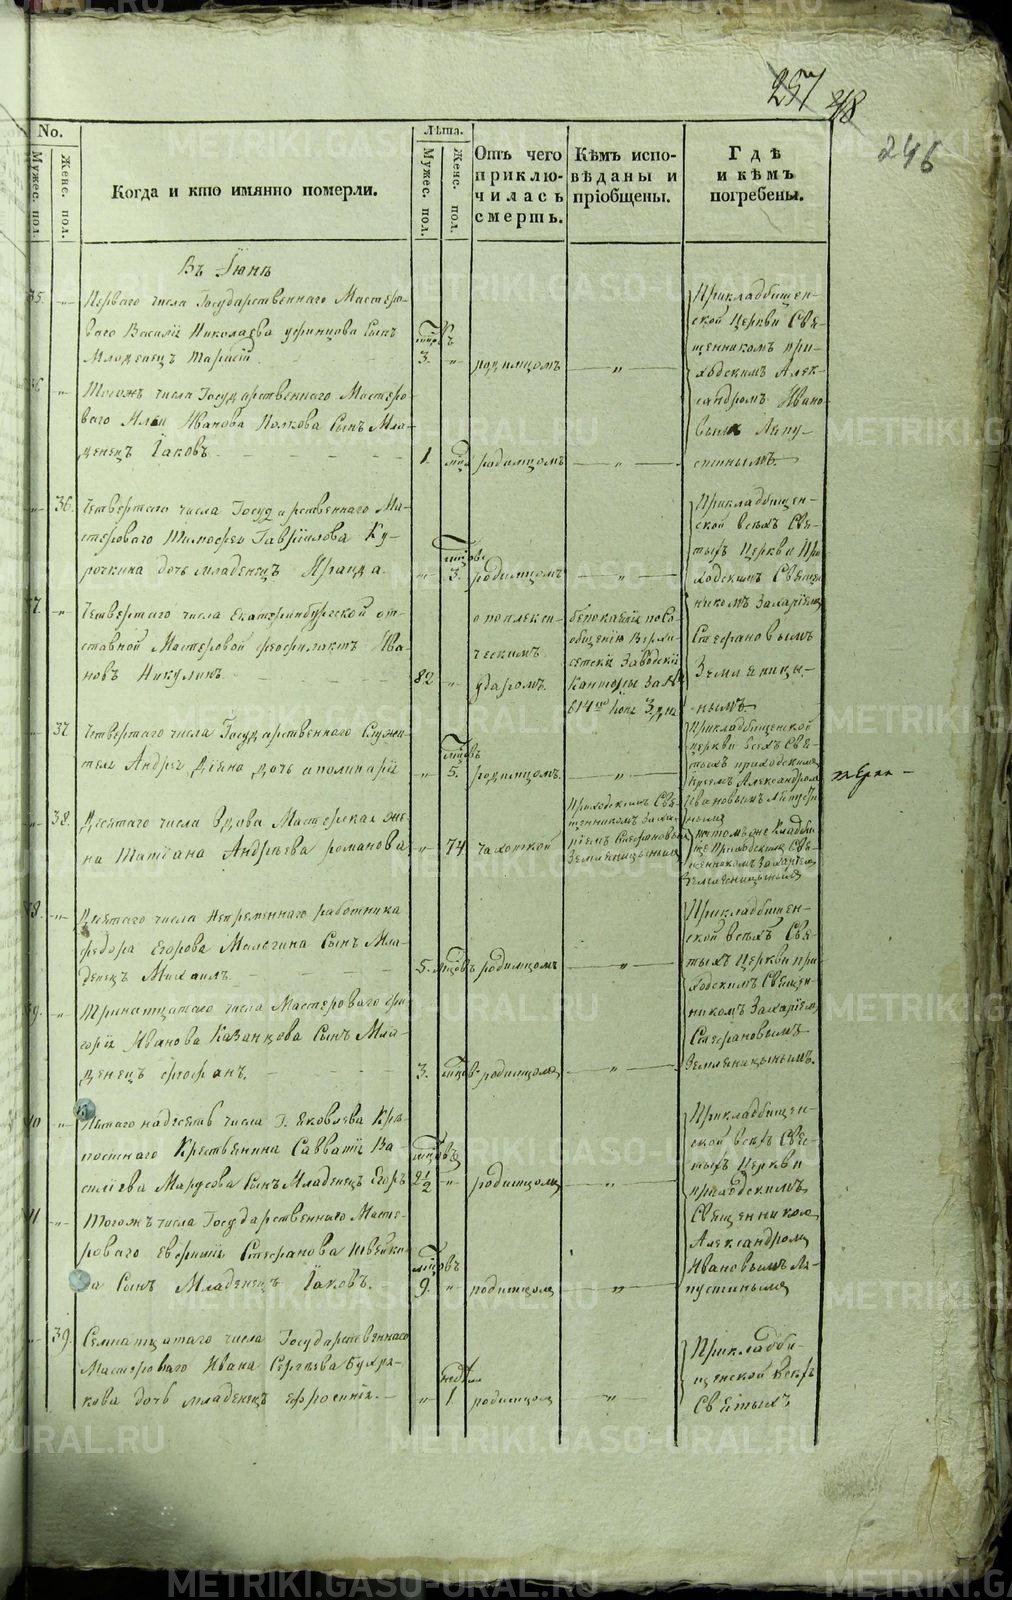 257
248
246
No.
Мужес. пол.
Женс. пол.
Когда и кто имянно померли.
Лѣта.
Мужес. пол.
Женс. пол.
Отъ чего приклю-
чилась
смерть.
Кѣмъ испо-
вѣданы и
пріобщены.
Гдѣ
и кѣмъ
погребены.
Въ Іюнѣ
35. Перваго числа Государственнаго Мастеро-
ваго Василія Николаева Сынъ
Младенецъ Тарасій
3. родимцомъ
Прикладбищен-
ской Церкви Свя-
щенникомъ при-
ходскимъ Алек-
сандромъ Ивано-
вымъ Лапу-
стинымъ.
36 Тогожъ числа Государственнаго Мастеро-
ваго Ильи Иванова Волкова Сынъ Мла-
денецъ Іаковъ
1 родимцомъ
36. Четвертаго числа Государственнаго Ма-
стероваго Тимофея Гаврилова Ку-
рочкина дочь младенецъ Ираида
3. родимцомъ
Прикладбищен-
ской всѣхъ Свя-
тыхъ Церкви При-
ходскимъ Священ-
никомъ Захаріемъ
Стефановымъ
Земляницы-
нымъ.
37. Четвертаго числа Екатеринбургской от-
ставной Мастеровой Феофилактъ Ива-
новъ Никулинъ
82
апоплекси-
ческимъ
ударомъ.
безпокаянія по Со-
общенію Верхъ-
исетской Заводской
Конторы за №
614
37 Четвертаго числа Государственнаго Служи-
теля Андрея Дочь аполинарія
5. родимцомъ
Прикладбищенской
церкви всѣхъ Свя-
тыхъ приходскимъ
Іереемъ Александромъ
Ивановымъ Лапусти-
нымъ
38. Десятаго числа Вдова Мастерская же-
на Татіана Андреева романова
74 чахоткой
Приходскимъ Свя-
щенникомъ Заха-
ріемъ Стефановымъ
Земляницынымъ
натомъ же Кладби-
ще Приходскимъ Свя-
щенникомъ Захаріемъ
Земляницынымъ
38. Десятаго числа Непременнаго работника
федора Егорова Малыгина Сынъ Мла-
денецъ Михаилъ
5. мцовъ родимцомъ
Прикладбищен-
ской всѣхъ Свя-
тыхъ Церкви при-
ходскимъ Священ-
никомъ Захаріемъ
Стефановымъ
Земляницынымъ.
39. Тринатцатаго числа Мастероваго Гри-
горія Иванова Казанцова Сынъ Мла-
денецъ феофанъ
3. мцовъ родимцомъ
40 Пятаго надесять числа Г. Яковлева Крѣ-
постнаго Крестьянина Савватія Ва-
силіева Марусова Сынъ Младенецъ Егоръ
мцовъ
2 1/2 родимцомъ
Прикладбищен-
ской всѣхъ Свя-
тыхъ Церкви
приходскимъ
Священникомъ
Александромъ
Ивановымъ Ла-
пустинымъ
41 Тогожъ числа Государственнаго Масте-
роваго Евфимія Стефанова Швейки-
на Сынъ Младенецъ Іаковъ.
мцовъ
9. родимцомъ
39. Семнатцатаго числа Государственнаго
Мастероваго Ивана Сергѣева Бухря-
кова дочь младенецъ Ефросинія.
1 родимцомъ
Прикладби-
щенской всѣхъ
Святыхъ